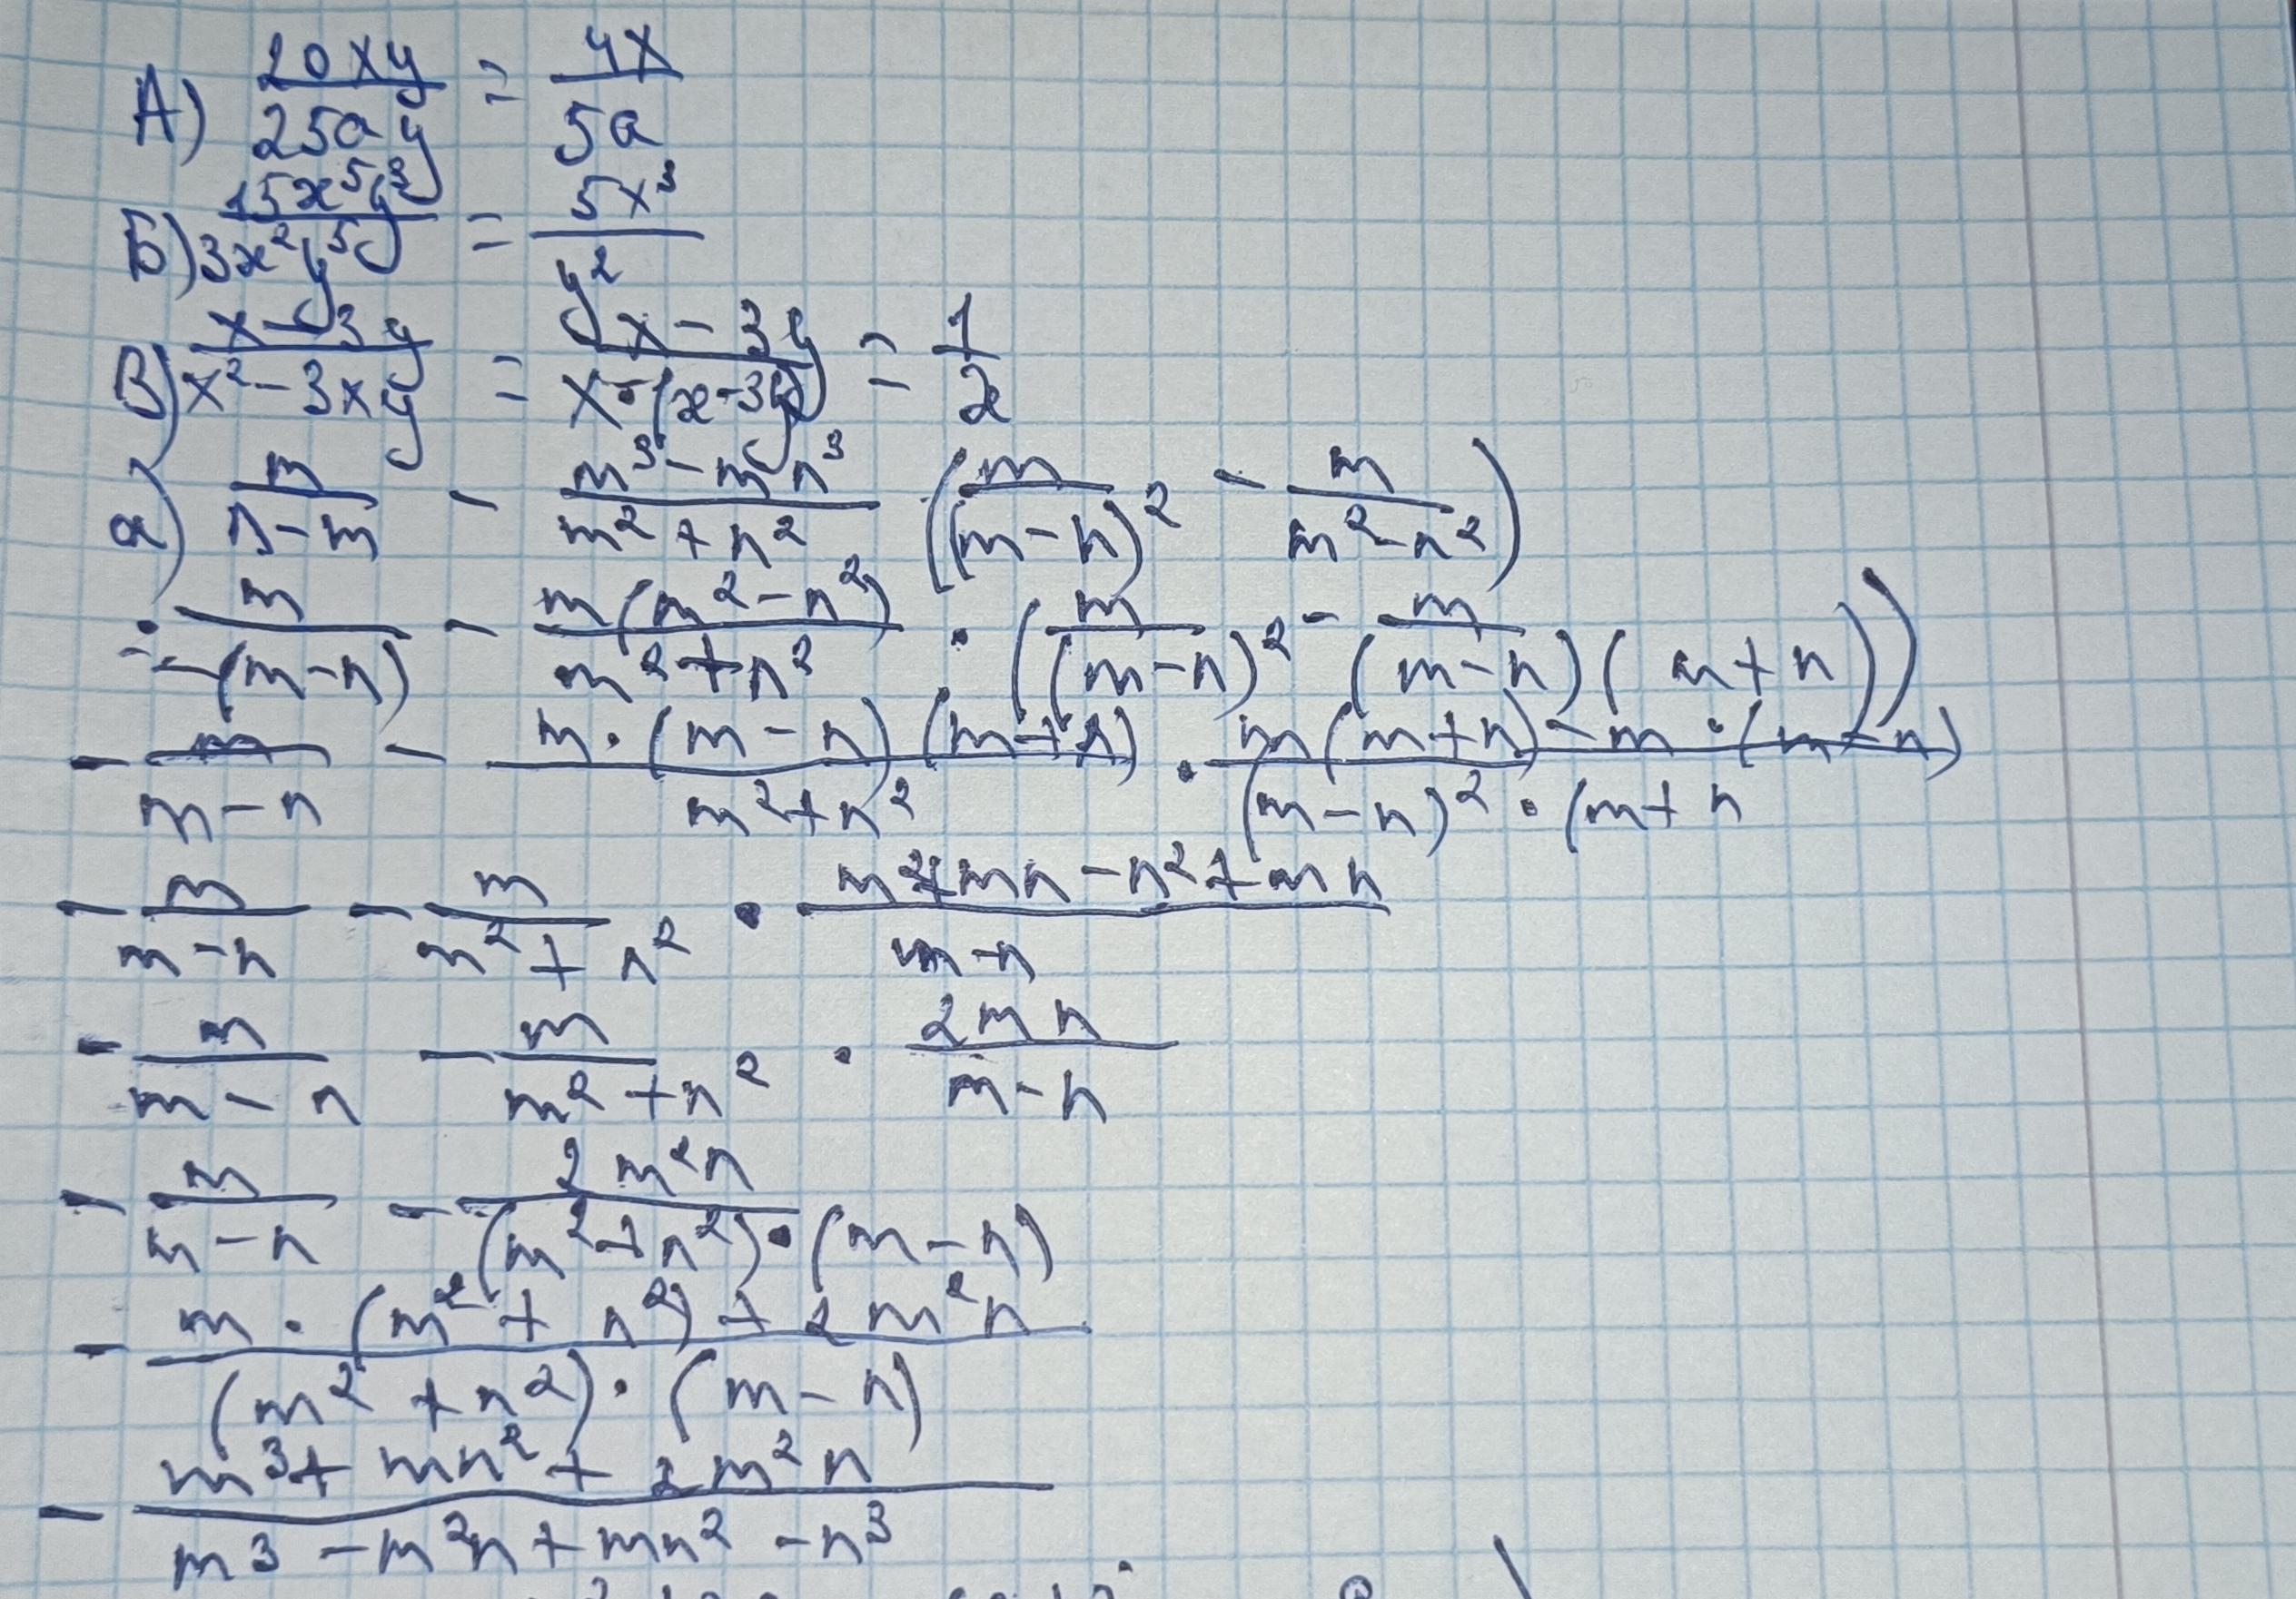 А) 20xy/25ay = 4x/5a
Б) 15x⁵y³/3x²y⁵ = 5x³/y²
В) x-3y/x²-3xy = x-3y/x·(x-3y) = 1/x
а) m/n-m - m³-mn³/m²+n² · (m/(m-n)² - m/m²-n²)
= m/-(m-n) - m(m²-n²)/m²+n² · (m/(m-n)² - m/(m-n)(m+n))
- m/m-n - m·(m-n)(m+n)/m²+n² · m(m+n)-m·(m-n)/(m-n)²·(m+n
- m/m-n - m/m²+n² · m²+mn-n²+mn/m-n
- m/m-n - m/m²+n² · 2mn/m-n
- m/m-n - 2m²n/(m²+n²)·(m-n)
- m·(m²+n²)+2m²n/(m²+n²)·(m-n)
- m³+mn²+2m²n/m³-m²n+mn²-n³